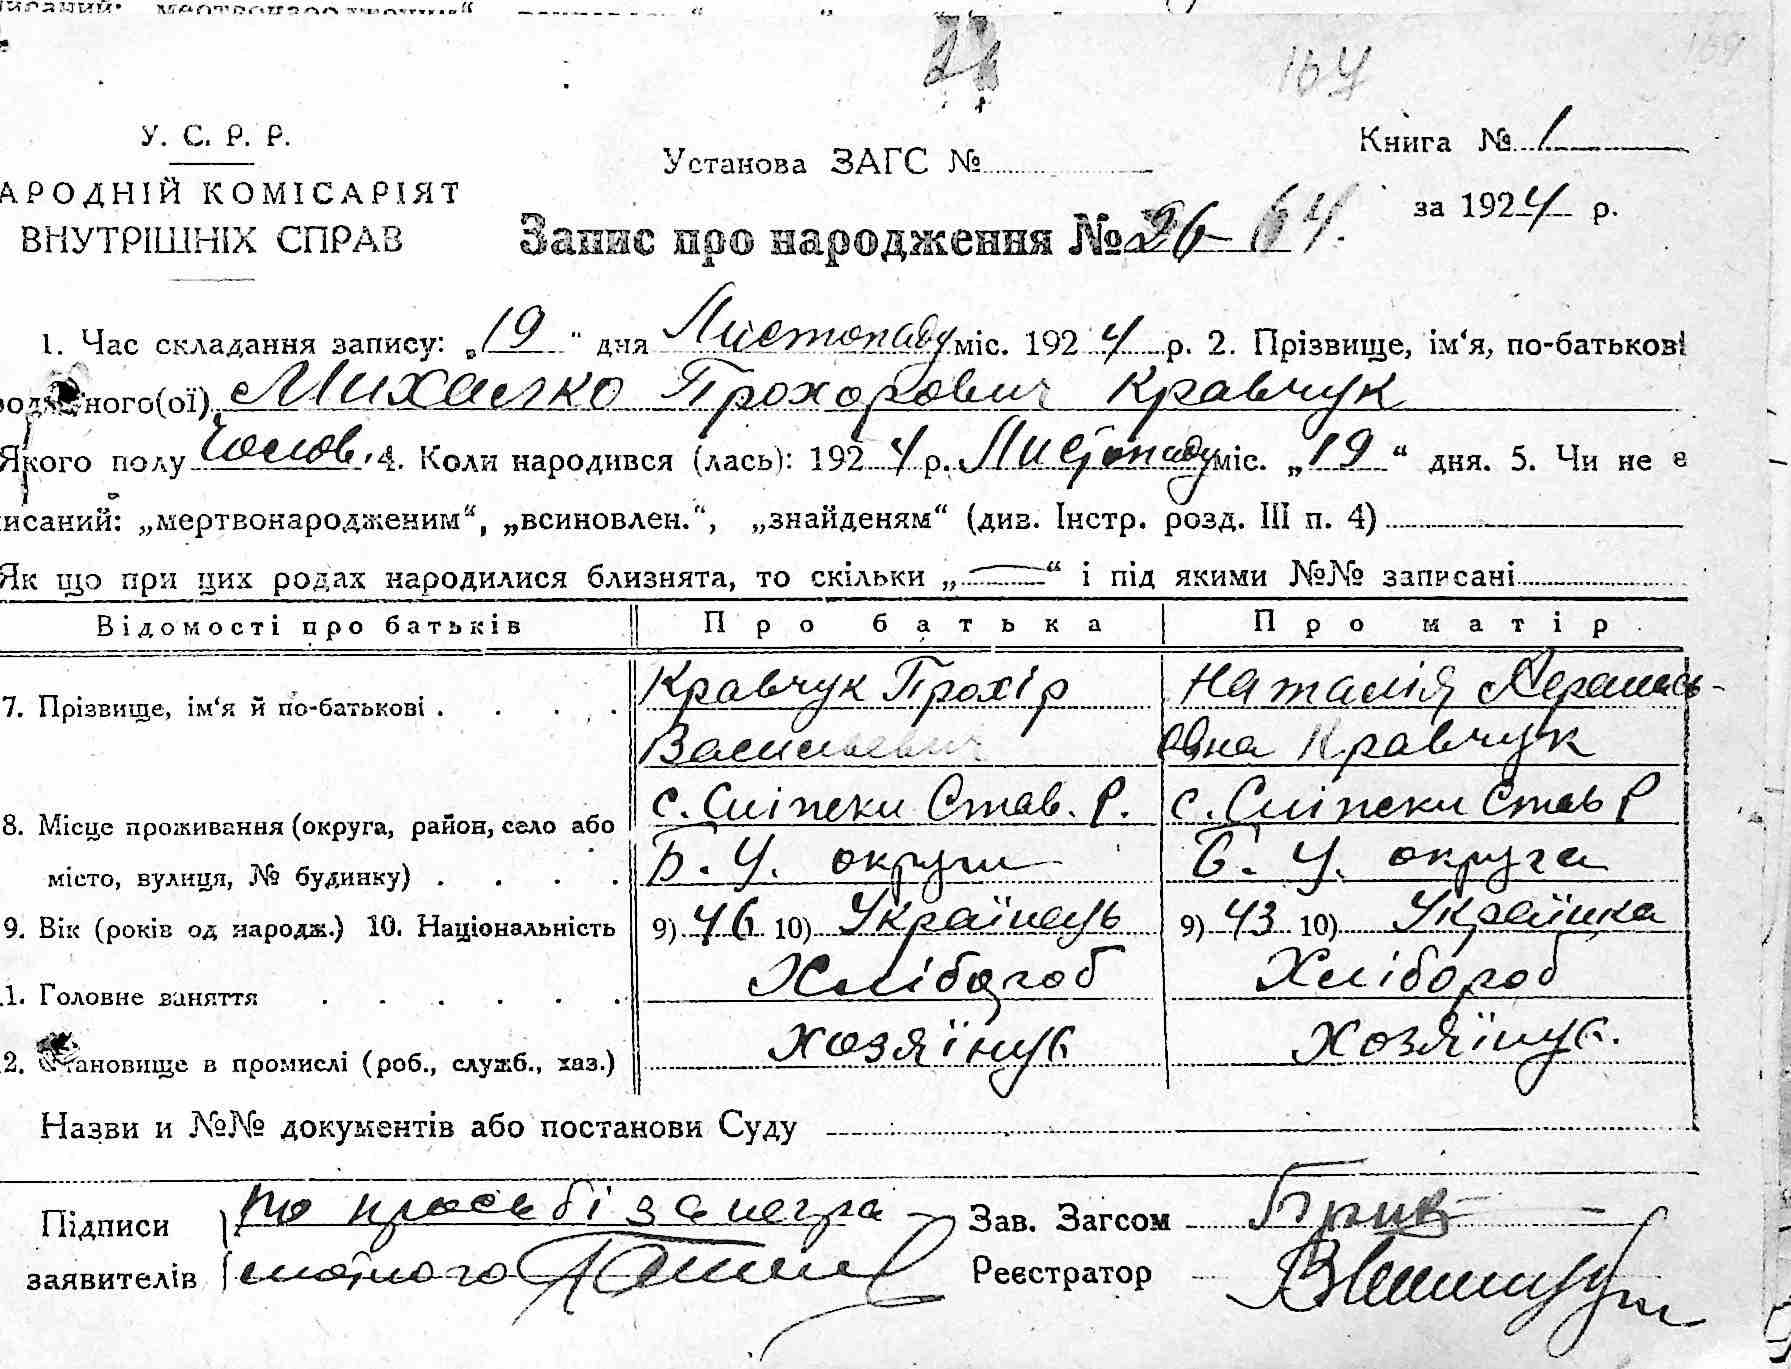 У. С. Р. Р.
АРОДНІЙ КОМІСАРІЯТ
ВНУТРІШНІХ СПРАВ
164
Установа ЗАГС №
Книга № 1
за 1924 р.
Запис про народження № 26 64.
1. Час складання запису: „19" дня Листопаду міс. 1924 р. 2. Прізвище, ім‘я, по-батькові
ного(ої) Михалко Прохорович Кравчук
Якого полу чолов. 4. Коли народився (лась): 1924 р. Листопаду міс. „19“ дня. 5. Чи не є
исаний: „мертвонародженим“, „всиновлен.“, „знайденям“ (див. Інстр. розд. III п. 4)
Як що при цих родах народилися близнята, то скільки „—“ і під якими №№ записані
Відомості про батьків Про батька Про матір
7. Прізвище, ім‘я й по-батькові . . . . Кравчук Прохір Наталія
Васильевич овна Кравчук
8. Місце проживання (округа, район, село або с. Сліпеки Став. Р. с. Сліпеки Став Р
місто, вулиця, № будинку) . . . . Б. Ц. округи Б. Ц. округа
9. Вік (років од народж.) 10. Національність 9) 46 10) Українець 9) 43 10) Українка
1. Головне заняття . . . . . . Хлібороб Хлібороб
2. тановище в промислі (роб., служб., хаз.) хозяїнує хозяїнує.
Назви и №№ документів або постанови Суду
Підписи по просьбі за негра- Зав. Загсом
заявителів мотного Реєстратор